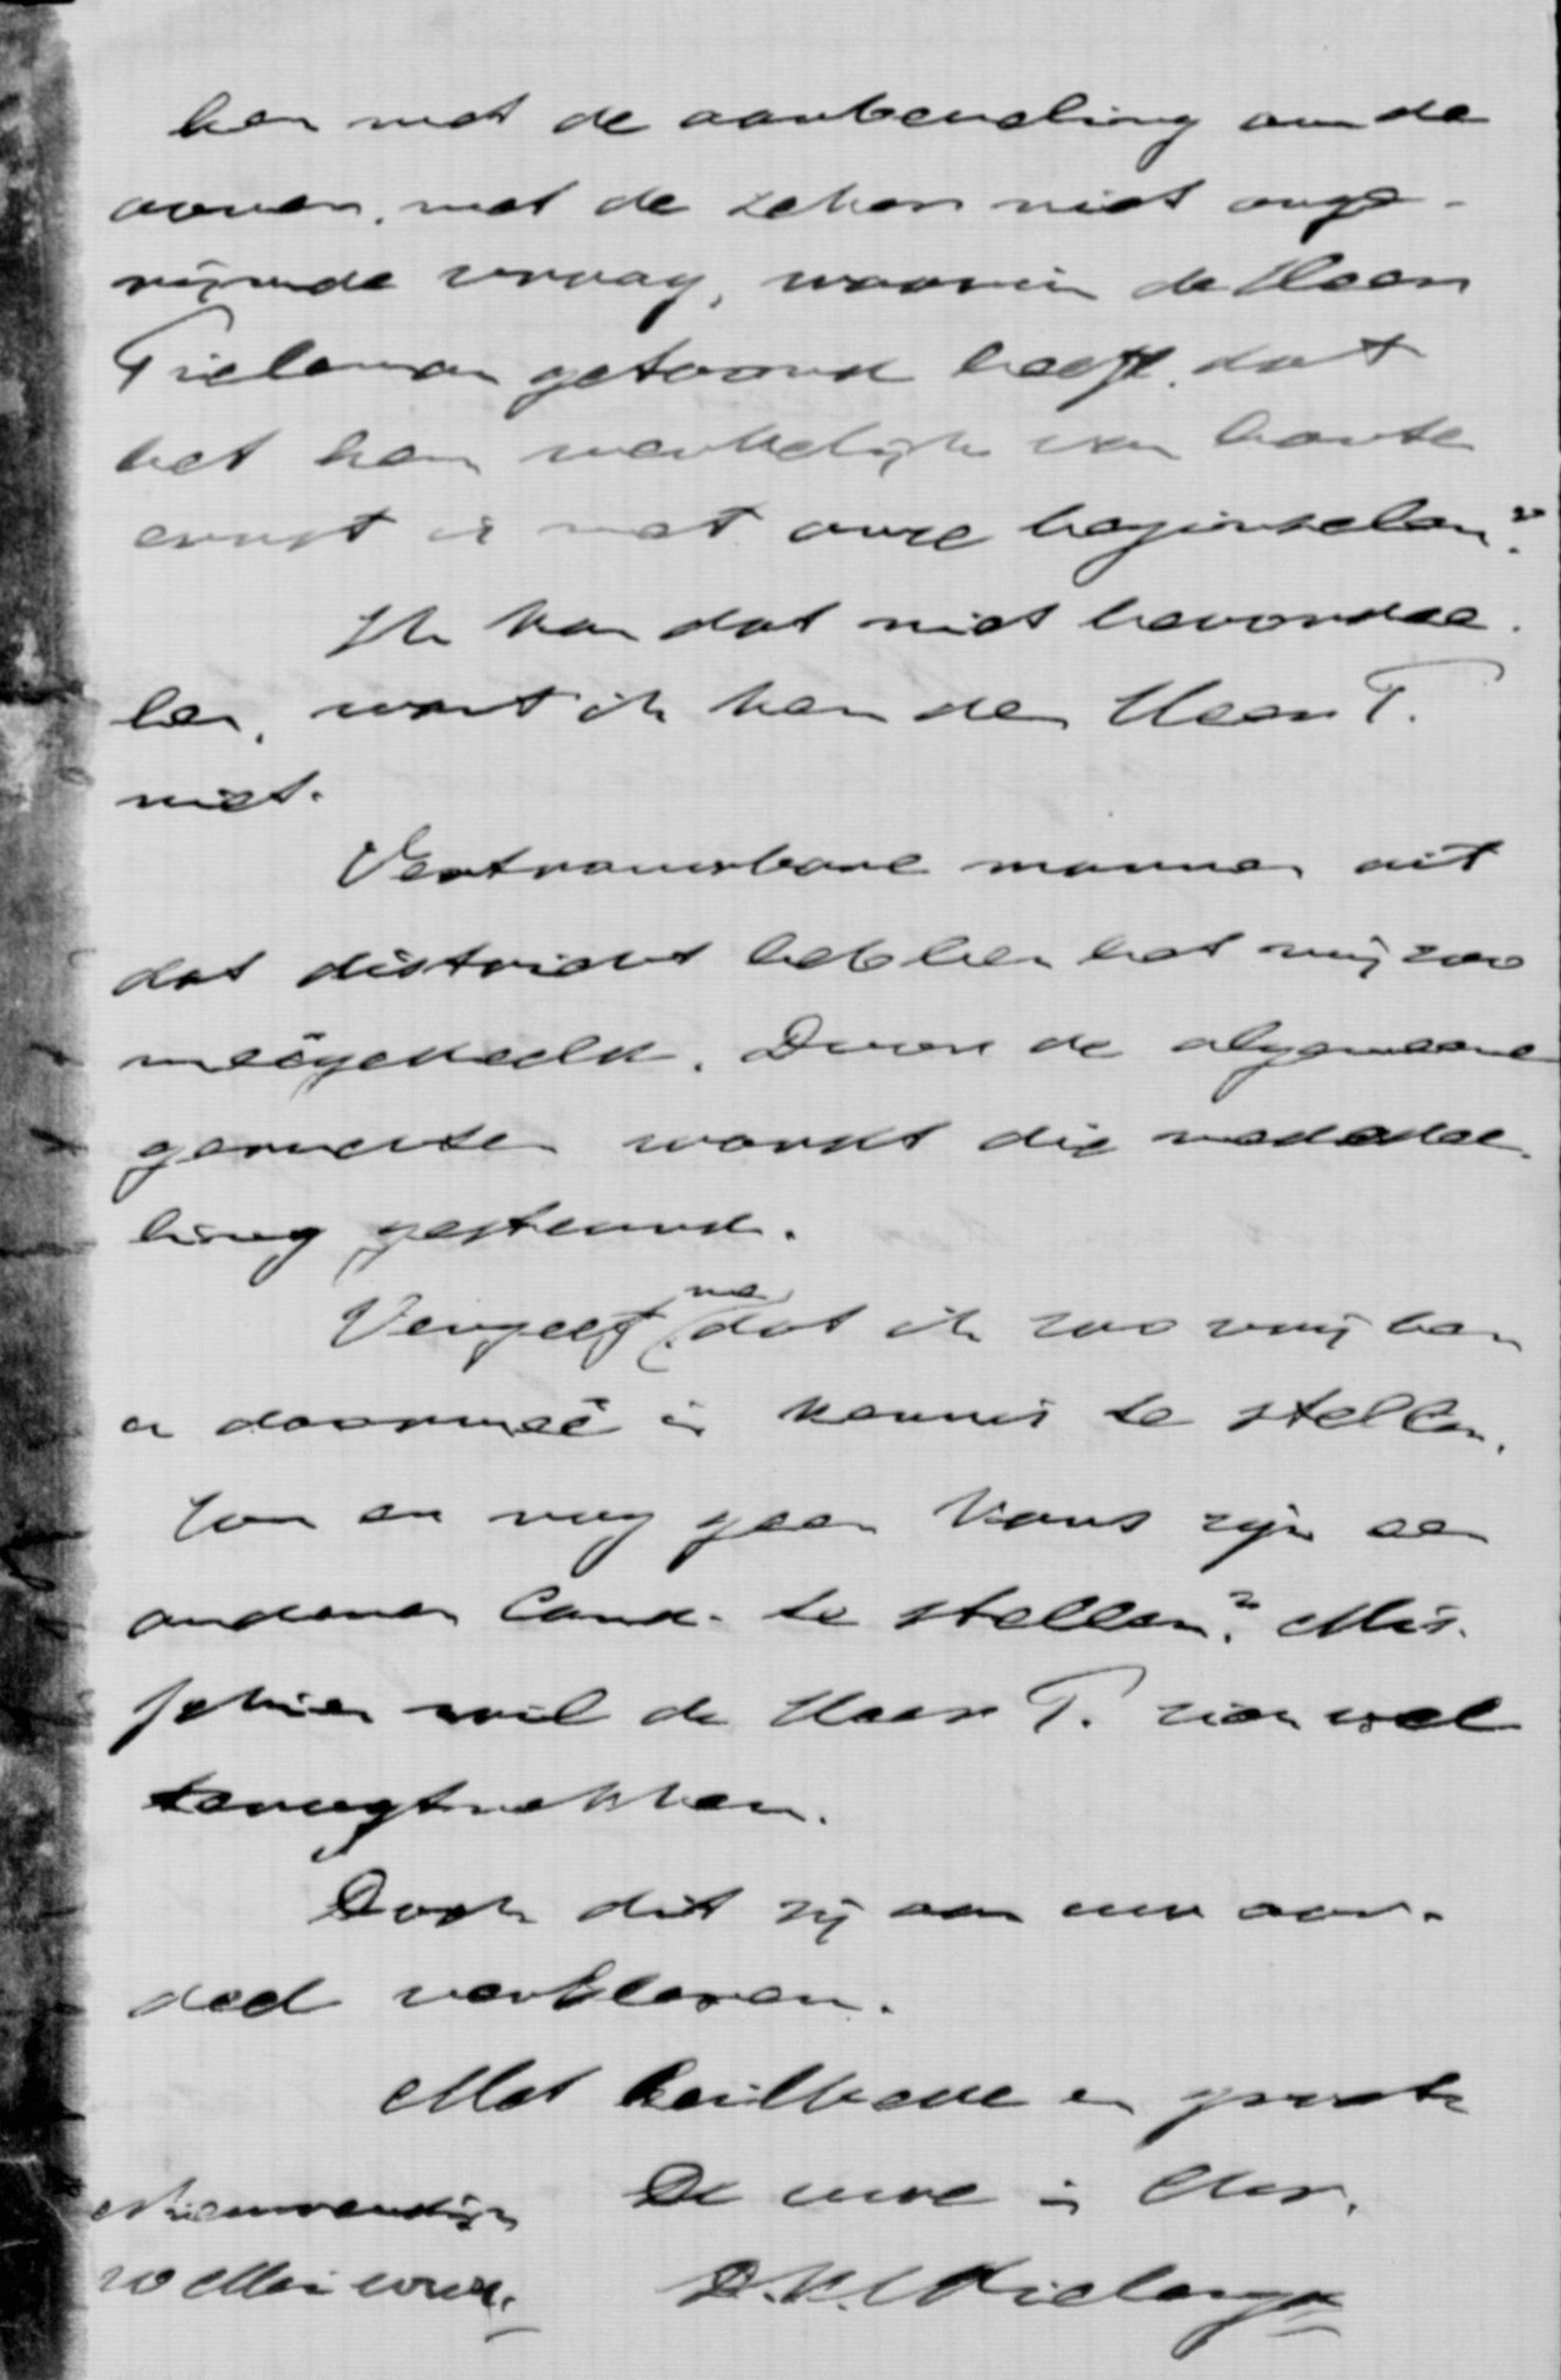 hen met de aanbeveling aan de
armen, met de zeker niet onge-
rijmde vraag, waarin de Heer
Tieleman getoond heeft, dat
het hem werkelijk van harte
ernst is met onze beginselen?
Ik kan dat niet beoordee-
len, want ik ken den Heer T.
niet.
Vertrouwbare mannen uit
dat district hebben het mij zoo
meêgedeeld. Door de algemeene
geruchten wordt die mededee-
ling gesteund.
Vergeef me, dat ik zoo vrij ben
u daarmeê in kennis te stellen.
Zou er nog geen kans zijn een
anderen Cand. te stellen? Mis-
schien wil de Heer T. zich wel
terugtrekken.
Doch dit zij aan uw oor-
deel verbleven.
Met heilbede en groete
De uwe in Chr.
Nieuwendijk
20 Mei
D. K. Wielenga